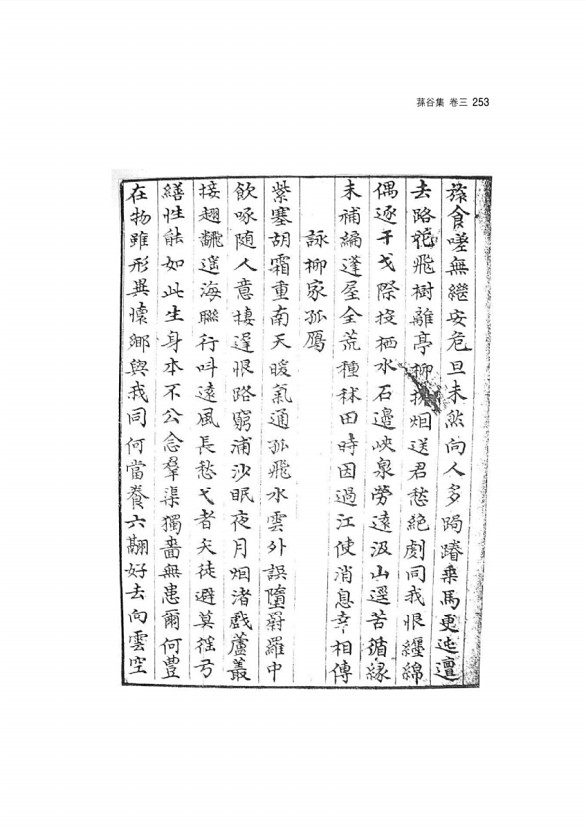 蓀谷集 卷三 253
食嗟無繼安危旦未然向人多跼蹐乘馬更迍邅
去路花飛樹離亭柳拂烟送君愁絶劇同我恨纏綿
偶逐干戈際投栖水石邊峽泉勞遠汲山逕苦循緣
未補編蓬屋全荒種秫田時因過江使消息幸相傳
詠柳家孤鴈
紫塞胡霜重南天暖氣通孤飛水雲外誤墮罻羅中
飮啄随人意棲遑恨路窮浦沙眠夜月烟渚戲蘆叢
接翅翻遥海聯行叫遠風長愁弋者矢徒避莫徭弓
繕性能如此生身本不公念羣渠獨嗇無患爾何豊
在物雖形異懷鄉與我同何當養六翮好去向雲空